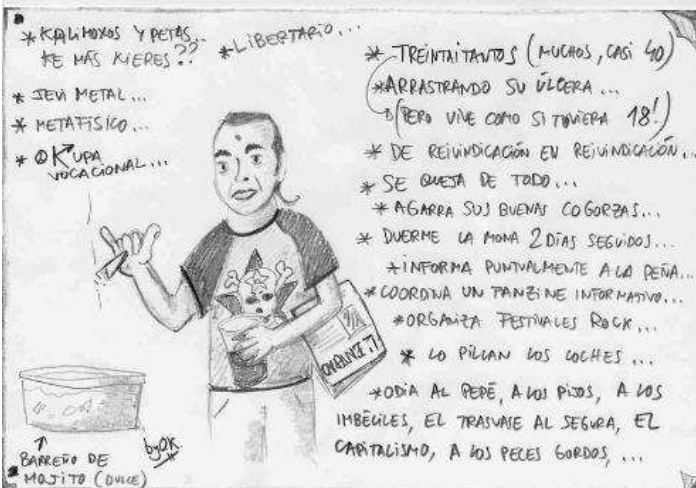 * KALIMOXOS Y PETAS...
KE MÁS KIERES??
* LIBERTARIO...
* JEVI METAL...
* METAFÍSICO...
* OKUPA
VOCACIONAL...
* TREINTAITANTOS (MUCHOS, CASI 40)
* ARRASTRANDO SU ÚLCERA...
(PERO VIVE COMO SI TUVIERA 18!)
* DE REIVINDICACIÓN EN REIVINDICACIÓN...
* SE QUEJA DE TODO...
* AGARRA SUS BUENAS COGORZAS...
* DUERME LA MONA 2 DÍAS SEGUIDOS...
* INFORMA PUNTUALMENTE A LA PEÑA...
* COORDINA UN FANZINE INFORMATIVO...
* ORGANIZA FESTIVALES ROCK...
* LO PILLAN LOS COCHES...
* ODIA AL PEPÉ, A LOS PIJOS, A LOS
IMBÉCILES, EL TRASVASE AL SEGURA, EL
CAPITALISMO, A LOS PECES GORDOS, ...
BARREÑO DE
MOJITO (DULCE)
by OK.